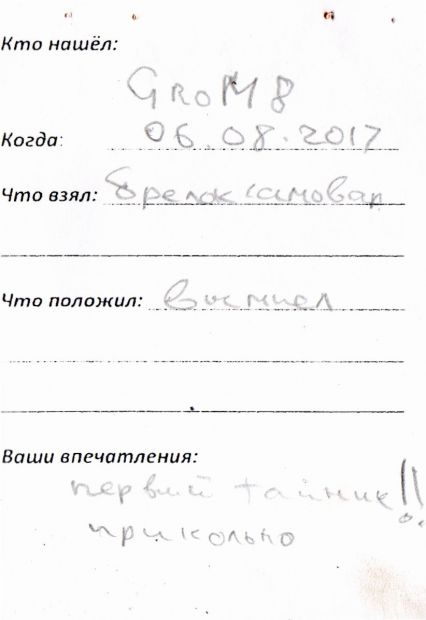 Кто нашёл:
GROM 8
Когда: 06.08.2017
Что взял: брелок самовар
Что положил:
Ваши впечатления:
первый тайник!!
прикольно